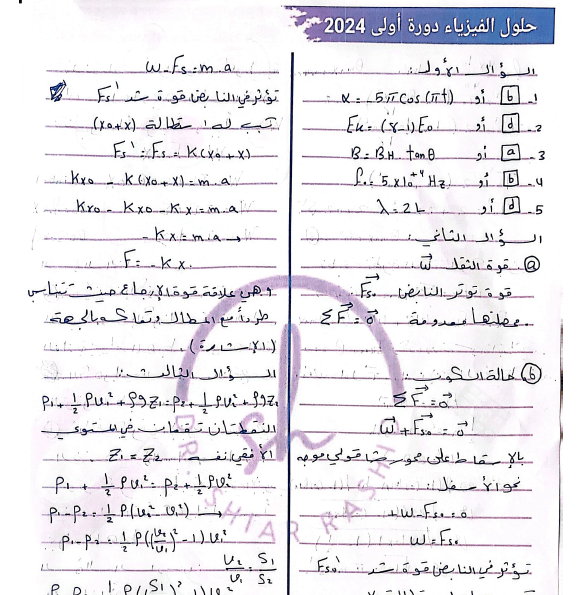 حلول الفيزياء دورة أولى 2024
السؤال الأول:
1- b أو α = -5π cos(πt)
2- d أو Ek = (γ-1)E0
3- a أو B = BH tanθ
4- b أو f0 = 5×10⁺⁴ Hz
5- d أو λ = 2L
السؤال الثاني:
a قوة الثقل W⃗
قوة توتر النابض Fs0⃗
محصلتها معدومة ΣF⃗ = 0⃗
b حالة السكون:
ΣF⃗ = 0⃗
W⃗ + Fs0⃗ = 0⃗
بالإسقاط على محور شاقولي موجه
نحو الأسفل
+W - Fs0 = 0
W = Fs0
تؤثر في النابض قوة شد Fs0'
W - Fs = m.a
تؤثر في النابض قوة شد Fs'
تسبب له استطالة (x0+x)
Fs' = Fs = K(x0+x)
Kx0 - K(x0+x) = m.a
Kx0 - Kx0 - Kx = m.a
-Kx = m.a →
F = -Kx
وهي علاقة قوة الإرجاع حيث تتناسب
طرداً مع المطال وتعاكسه بالجهة
(الإشارة)
السؤال الثالث:
P1 + ½ρv1² + ρgz1 = P2 + ½ρv2² + ρgz2
النقطتان تقعان في المستوي
الأفقي نفسه z1 = z2
P1 + ½ρv1² = P2 + ½ρv2²
P1 - P2 = ½ρ(v2² - v1²) →
P1 - P2 = ½ρ((v2/v1)² - 1)v1²
v2/v1 = S1/S2
DR. SHIAR RASHI